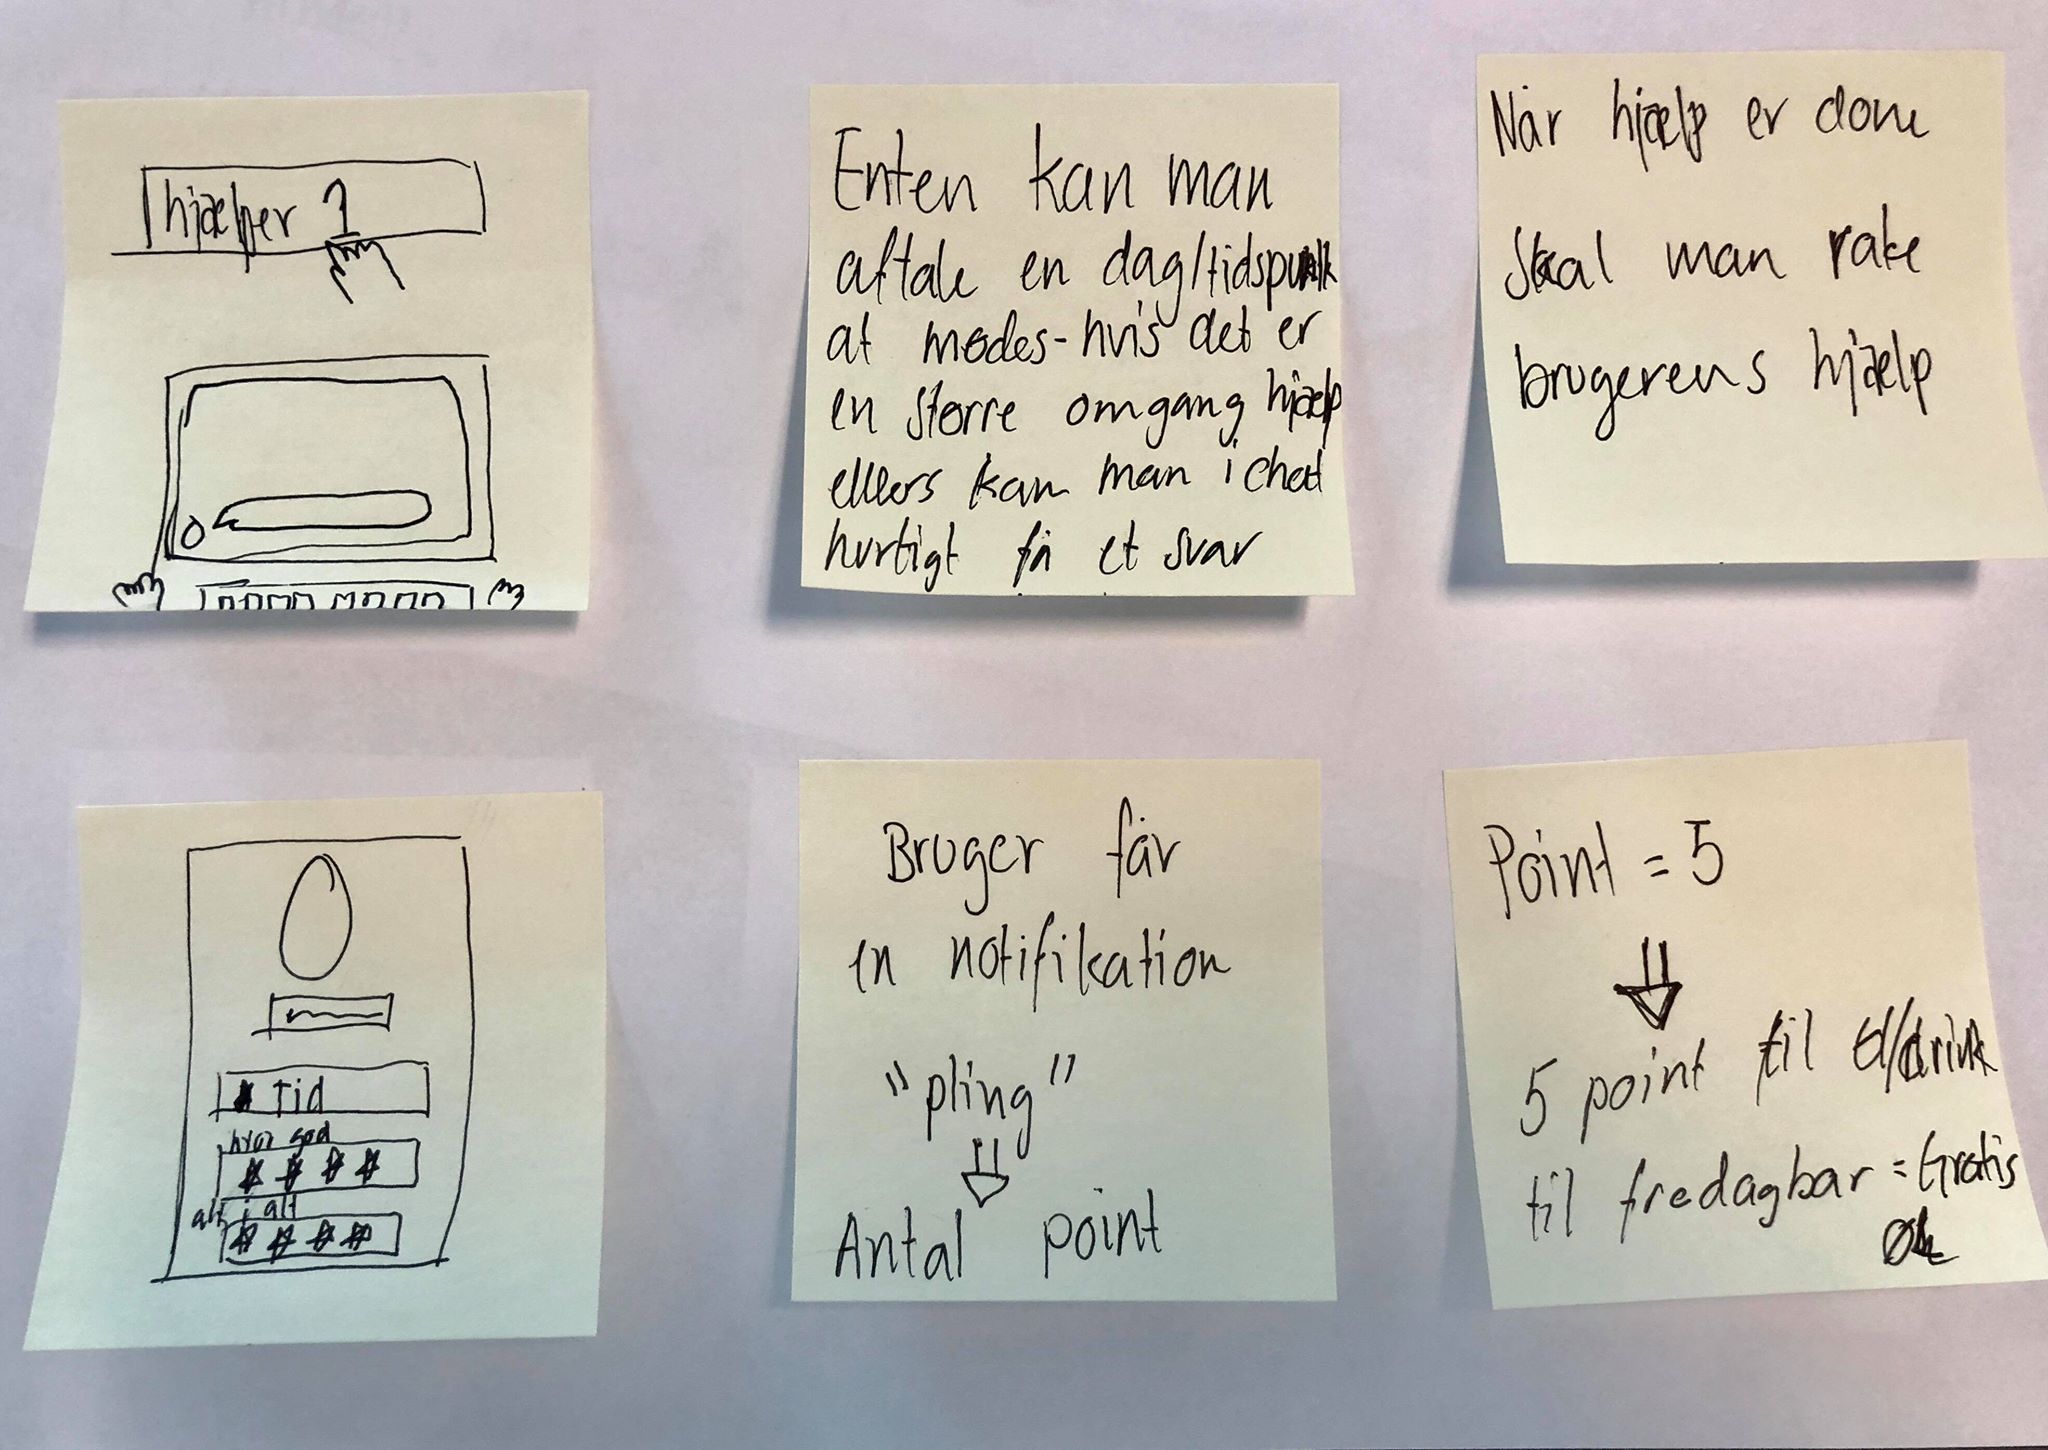 hjælper 1
Enten kan man
aftale en dag/tidspunkt
at mødes - hvis det er
en større omgang hjælp
ellers kan man i chat
hurtigt få et svar
Når hjælp er done
Skal man rate
brugerens hjælp
Tid
hvor god
alt i alt
Bruger får
en notifikation
"pling"
Antal point
Point = 5
5 point til øl/drink
til fredagbar = Gratis
øl